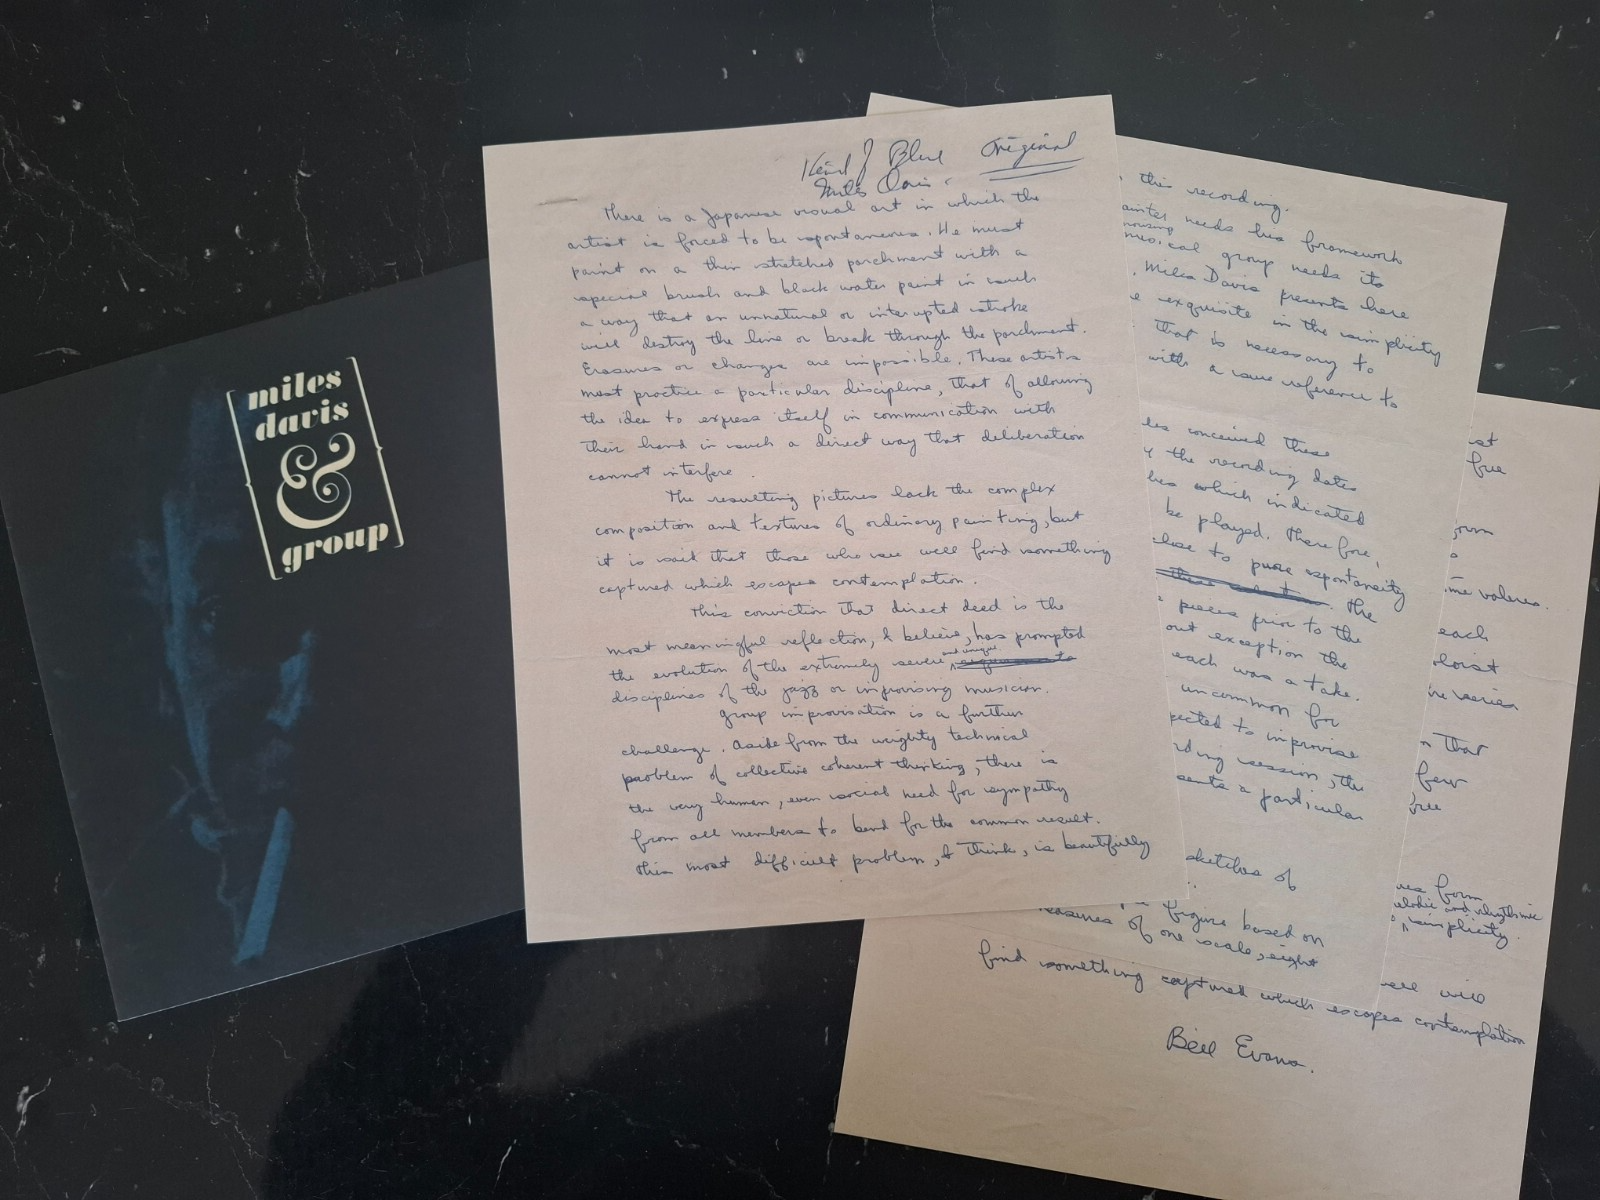 miles
davis
&
group
Kind of Blue Original
Miles Davis.
There is a Japanese visual art in which the
artist is forced to be spontaneous. He must
paint on a thin stretched parchment with a
special brush and black water paint in such
a way that an unnatural or interupted stroke
will destroy the line or break through the parchment.
Erasures or changes are impossible. These artists
must practice a particular discipline, that of allowing
the idea to express itself in communication with
their hand in such a direct way that deliberation
cannot interfere.
The resulting pictures lack the complex
composition and textures of ordinary painting, but
it is said that those who see well find something
captured which escapes contemplation.
This conviction that direct deed is the
most meaningful reflection, I believe, has prompted
the evolution of the extremely severe and unique
disciplines of the jazz or improvising musician.
Group improvisation is a further
challenge. Aside from the weighty technical
problem of collective coherent thinking, there is
the very human, even social need for sympathy
from all members to bend for the common result.
This most difficult problem, I think, is beautifully
this recording.
painter needs his framework
musical group needs its
Miles Davis presents here
exquisite in the simplicity
that is necessary to
with a sure reference to
conceived these
the recording dates
which indicated
be played. Therefore,
close to pure spontaneity
The
pieces prior to the
out exception the
each was a take.
uncommon for
expected to improvise
recording session, the
a particular
sketches of
figure based on
measures of one scale, eight
free
time values.
each
soloist
series
that
few
free
form
melodic and rhythmic
simplicity.
well will
find something captured which escapes contemplation
Bill Evans.